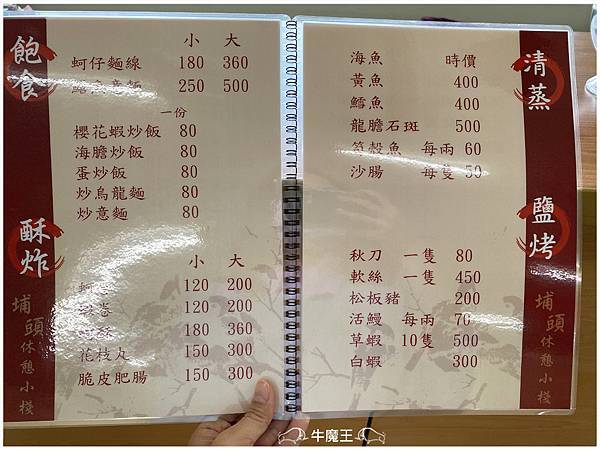 飽食
小 大
蚵仔麵線 180 360
意麵 250 500
一份
櫻花蝦炒飯 80
海膽炒飯 80
蛋炒飯 80
炒烏龍麵 80
炒意麵 80
酥炸
小 大
120 200
120 200
180 360
花枝丸 150 300
脆皮肥腸 150 300
埔頭休憩小棧
清蒸
海魚 時價
黃魚 400
鱈魚 400
龍膽石斑 500
筍殼魚 每兩 60
沙腸 每隻 50
鹽烤
秋刀 一隻 80
軟絲 一隻 450
松板豬 200
活鰻 每兩 70
草蝦 10隻 500
白蝦 300
埔頭休憩小棧
牛魔王